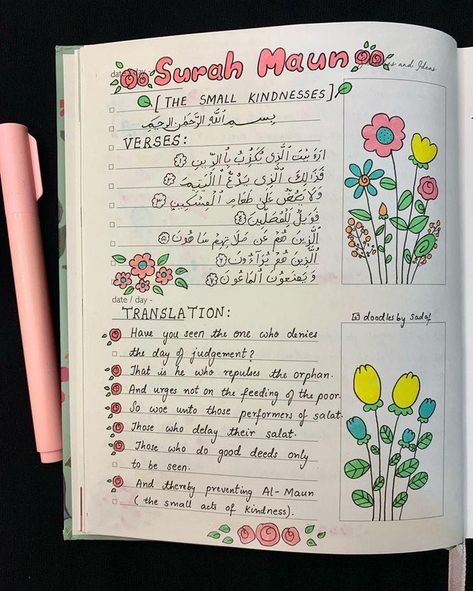 date / day
Surah Maun
s and Ideas
[THE SMALL KINDNESSES]
بِسْمِ ٱللَّهِ الرَّحْمَٰنِ الرَّحِيمِ
VERSES:
اَرَءَيْتَ ٱلَّذِى يُكَذِّبُ بِٱلدِّينِ ١
فَذَٰلِكَ ٱلَّذِى يَدُعُّ ٱلْيَتِيمَ ٢
وَلَا يَحُضُّ عَلَىٰ طَعَامِ ٱلْمِسْكِينِ ٣
فَوَيْلٌ لِّلْمُصَلِّينَ ٤
ٱلَّذِينَ هُمْ عَن صَلَاتِهِمْ سَاهُونَ ٥
ٱلَّذِينَ هُمْ يُرَآءُونَ ٦
وَيَمْنَعُونَ ٱلْمَاعُونَ ٧
date / day -
TRANSLATION:
Have you seen the one who denies
the day of judgement?
That is he who repulses the orphan.
And urges not on the feeding of the poor.
So woe unto those performers of salat.
Those who delay their salat.
Those who do good deeds only
to be seen.
And thereby preventing Al-Maun
(the small acts of kindness).
doodles by sadaf